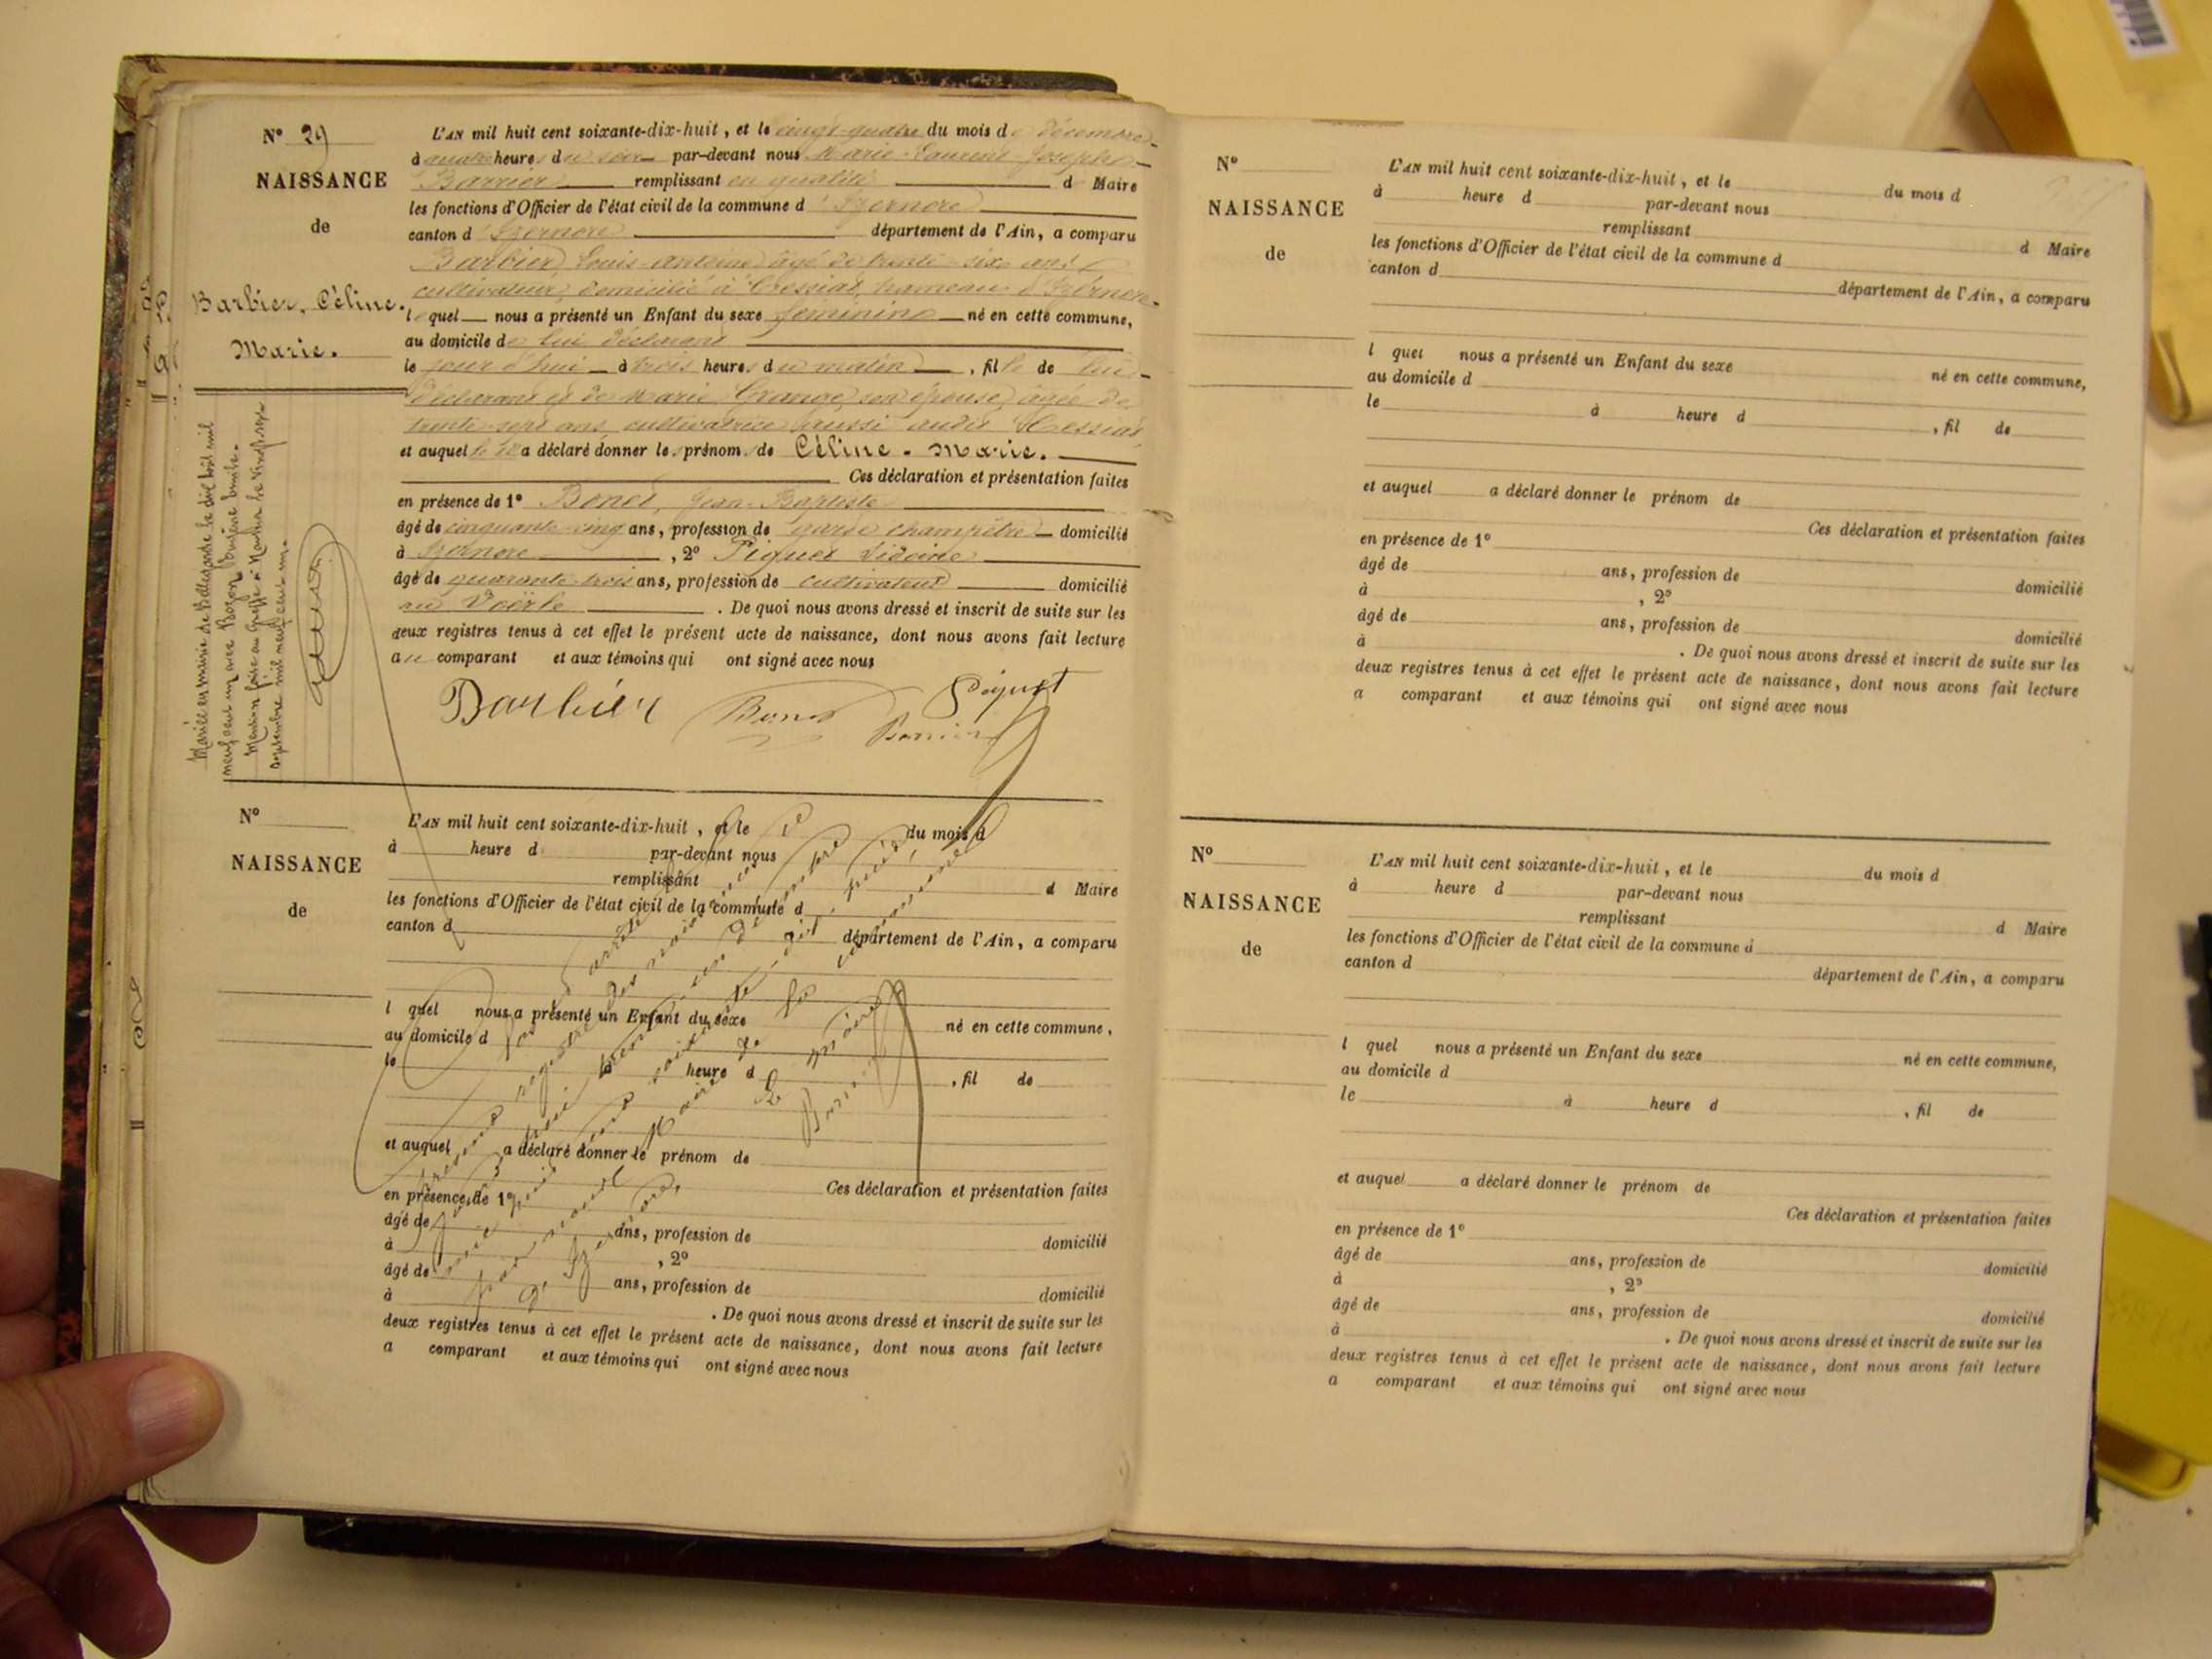 N° 29
NAISSANCE
de
Barbier, Céline.
Marie.
L'AN mil huit cent soixante-dix-huit, et le vingt-quatre du mois de décembre
à quatre heures du soir par-devant nous Marie-Laurent-Joseph
Barrier remplissant en qualité d Maire
les fonctions d'Officier de l'état civil de la commune d'Izernore
canton d'Izernore département de l'Ain, a comparu
Barbier, Louis-Antoine, âgé de trente-six ans,
cultivateur, domicilié à Cessiat, hameau d'Izernore
lequel nous a présenté un Enfant du sexe féminin né en cette commune,
au domicile de lui déclarant
le jour d'hui à trois heures du matin, fille de lui
déclarant et de Marie Grange, son épouse, âgée de
trente-sept ans, cultivatrice aussi audit Cessiat
et auquel il a déclaré donner les prénoms de Céline-Marie.
Ces déclaration et présentation faites
en présence de 1° Benet, Jean-Baptiste
âgé de cinquante-cinq ans, profession de garde champêtre domicilié
à Izernore, 2° Piquet
âgé de quarante-trois ans, profession de cultivateur domicilié
au Voërle. De quoi nous avons dressé et inscrit de suite sur les
deux registres tenus à cet effet le présent acte de naissance, dont nous avons fait lecture
au comparant et aux témoins qui ont signé avec nous
Barbier Benet Piquet
Barrier
Mariée en mairie de Bellegarde le dix août mil
neuf cent un avec Bozon
Mention faite au Greffe à Nantua le vingt sept
septembre mil neuf cent un.
N°
NAISSANCE
de
L'AN mil huit cent soixante-dix-huit, et le du mois d
à heure d par-devant nous
remplissant d Maire
les fonctions d'Officier de l'état civil de la commune d
canton d département de l'Ain, a comparu
l quel nous a présenté un Enfant du sexe né en cette commune,
au domicile d
le à heure d, fil de
et auquel a déclaré donner le prénom de
Ces déclaration et présentation faites
en présence de 1°
âgé de ans, profession de domicilié
à, 2°
âgé de ans, profession de domicilié
à. De quoi nous avons dressé et inscrit de suite sur les
deux registres tenus à cet effet le présent acte de naissance, dont nous avons fait lecture
a comparant et aux témoins qui ont signé avec nous
N°
NAISSANCE
de
L'AN mil huit cent soixante-dix-huit, et le du mois d
à heure d par-devant nous
remplissant d Maire
les fonctions d'Officier de l'état civil de la commune d
canton d département de l'Ain, a comparu
l quel nous a présenté un Enfant du sexe né en cette commune,
au domicile d
le à heure d, fil de
et auquel a déclaré donner le prénom de
Ces déclaration et présentation faites
en présence de 1°
âgé de ans, profession de domicilié
à, 2°
âgé de ans, profession de domicilié
à. De quoi nous avons dressé et inscrit de suite sur les
deux registres tenus à cet effet le présent acte de naissance, dont nous avons fait lecture
a comparant et aux témoins qui ont signé avec nous
N°
NAISSANCE
de
L'AN mil huit cent soixante-dix-huit, et le du mois d
à heure d par-devant nous
remplissant d Maire
les fonctions d'Officier de l'état civil de la commune d
canton d département de l'Ain, a comparu
l quel nous a présenté un Enfant du sexe né en cette commune,
au domicile d
le à heure d, fil de
et auquel a déclaré donner le prénom de
Ces déclaration et présentation faites
en présence de 1°
âgé de ans, profession de domicilié
à, 2°
âgé de ans, profession de domicilié
à. De quoi nous avons dressé et inscrit de suite sur les
deux registres tenus à cet effet le présent acte de naissance, dont nous avons fait lecture
a comparant et aux témoins qui ont signé avec nous